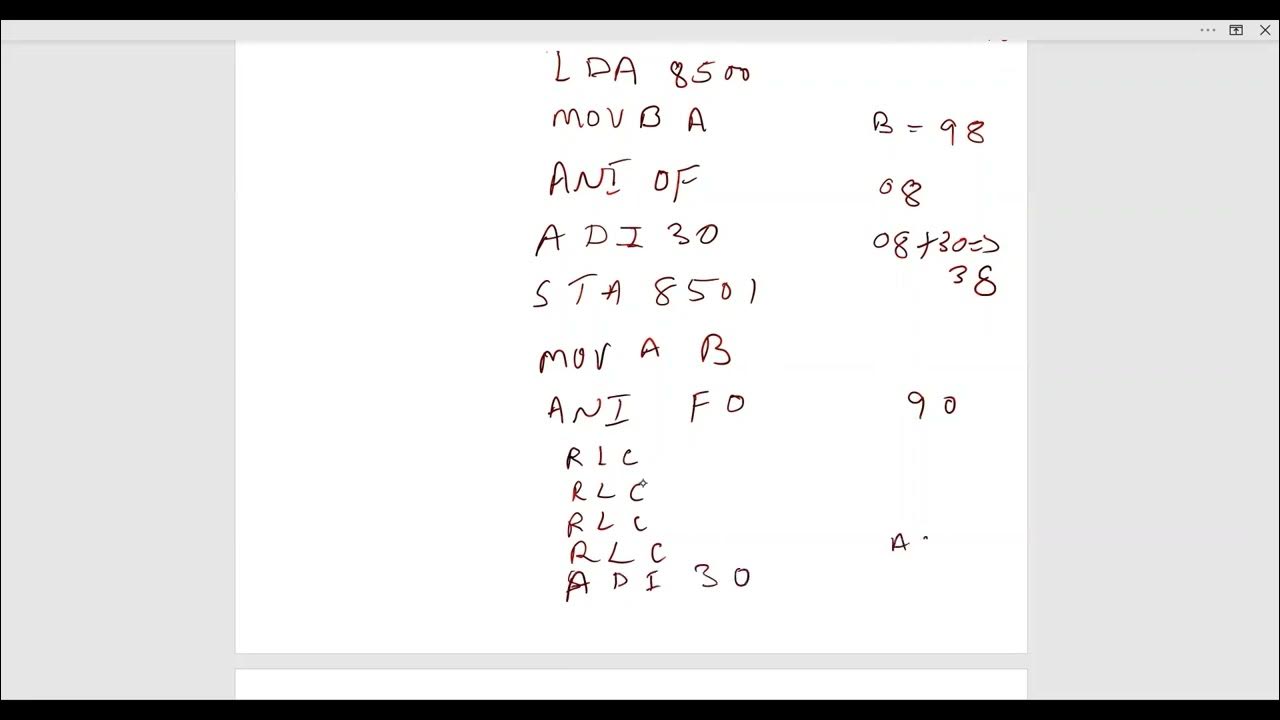 LDA 8500
MOV B A B = 98
ANI 0F 08
ADI 30 08+30=>
38
STA 8501
MOV A B
ANI F0 90
RLC
RLC
RLC
RLC A
ADI 30